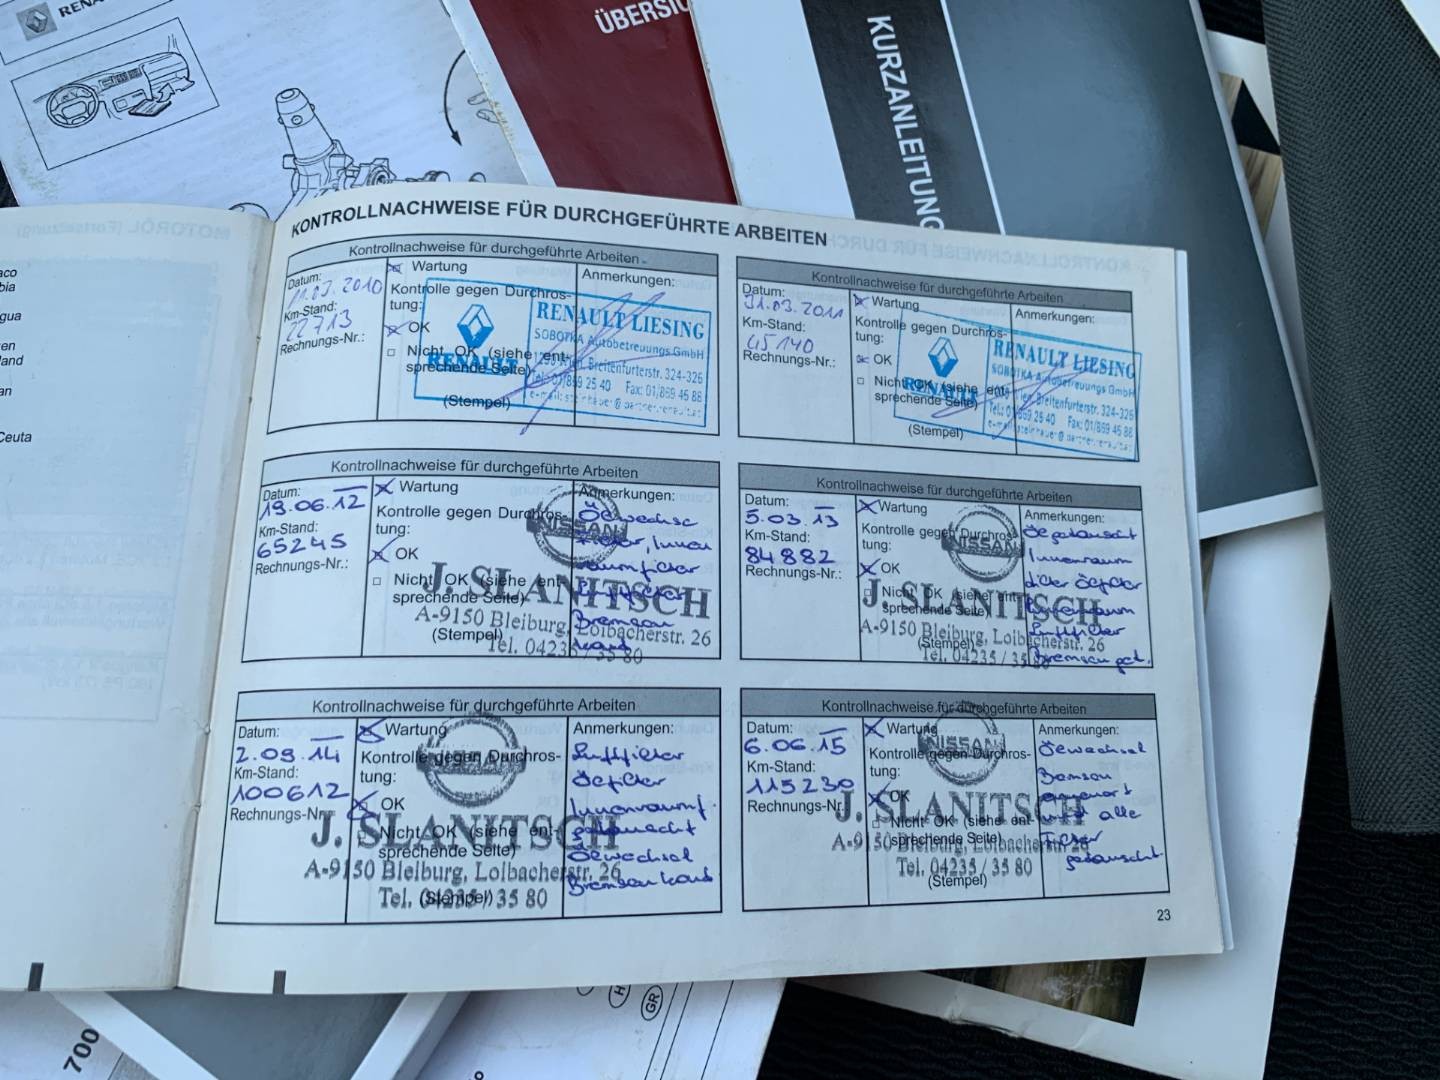 RENA
ÜBERSIC
KURZANLEITUNG
MOTORÖL (Fortsetzung)
aco
bia
gua
en
land
an
Ceuta
KONTROLLNACHWEISE FÜR DURCHGEFÜHRTE ARBEITEN
Kontrollnachweise für durchgeführte Arbeiten
Datum:
11.03.2010
Km-Stand:
22713
Rechnungs-Nr.:
Wartung
Kontrolle gegen Durchros-
tung:
OK
Nicht OK (siehe ent-
sprechende Seite)
(Stempel)
Anmerkungen:
RENAULT
RENAULT LIESING
SOBOTKA Autobetreuungs GmbH
1230 Wien, Breitenfurterstr. 324-326
Tel.: 01/869 25 40 Fax: 01/869 45 88
Kontrollnachweise für durchgeführte Arbeiten
Datum:
31.03.2011
Km-Stand:
45140
Rechnungs-Nr.:
Wartung
Kontrolle gegen Durchros-
tung:
OK
Nicht OK (siehe ent-
sprechende Seite)
(Stempel)
Anmerkungen:
RENAULT
RENAULT LIESING
SOBOTKA Autobetreuungs GmbH
Wien, Breitenfurterstr. 324-326
Tel.: 01/869 25 40 Fax: 01/869 45 88
Kontrollnachweise für durchgeführte Arbeiten
Datum:
19.06.12
Km-Stand:
65245
Rechnungs-Nr.:
Wartung
Kontrolle gegen Durchros-
tung:
OK
Nicht OK (siehe ent-
sprechende Seite)
(Stempel)
Anmerkungen:
Filter, Innen
raumfilter
Luftfilter
Bremsen
NISSAN
J. SLANITSCH
A-9150 Bleiburg, Loibacherstr. 26
Tel. 04235 / 35 80
Kontrollnachweise für durchgeführte Arbeiten
Datum:
5.03.13
Km-Stand:
84882
Rechnungs-Nr.:
Wartung
Kontrolle gegen Durchros-
tung:
OK
Nicht OK (siehe ent-
sprechende Seite)
(Stempel)
Anmerkungen:
Innenraum
Luftfilter
Bremsen
NISSAN
J. SLANITSCH
A-9150 Bleiburg, Loibacherstr. 26
Tel. 04235 / 35 80
Kontrollnachweise für durchgeführte Arbeiten
Datum:
2.09.14
Km-Stand:
100612
Rechnungs-Nr.
Wartung
Kontrolle gegen Durchros-
tung:
OK
Nicht OK (siehe ent-
sprechende Seite)
(Stempel)
Anmerkungen:
Luftfilter
Ölfilter
Innenraumf.
Ölwechsel
Bremsen
NISSAN
J. SLANITSCH
A-9150 Bleiburg, Loibacherstr. 26
Tel. 04235 / 35 80
Kontrollnachweise für durchgeführte Arbeiten
Datum:
6.06.15
Km-Stand:
115230
Rechnungs-Nr.
Wartung
Kontrolle gegen Durchros-
tung:
OK
Nicht OK (siehe ent-
sprechende Seite)
(Stempel)
Anmerkungen:
Ölwechsel
Bremsen
und alle
Filter
NISSAN
J. SLANITSCH
A-9150 Bleiburg, Loibacherstr. 26
Tel. 04235 / 35 80
23
700
GR